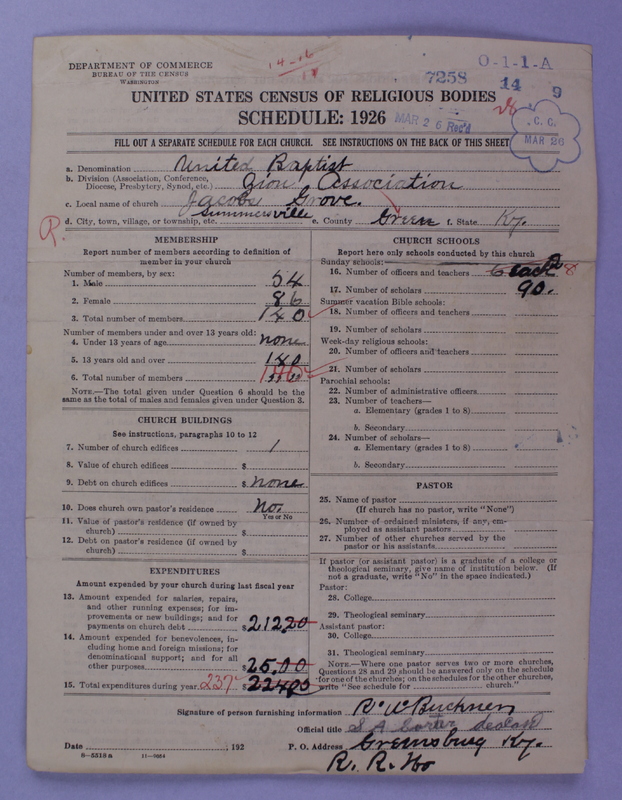 DEPARTMENT OF COMMERCE
BUREAU OF THE CENSUS
WASHINGTON
14-16
O-1-1-A
7258
14 9
UNITED STATES CENSUS OF RELIGIOUS BODIES
SCHEDULE: 1926
MAR 26 Rec'd
C. C.
MAR 26
FILL OUT A SEPARATE SCHEDULE FOR EACH CHURCH. SEE INSTRUCTIONS ON THE BACK OF THIS SHEET
a. Denomination United Baptist
b. Division (Association, Conference, Diocese, Presbytery, Synod, etc.) Zion Association
c. Local name of church Jacobs Grove.
d. City, town, village, or township, etc. Summersville e. County Green f. State Ky.
MEMBERSHIP
Report number of members according to definition of
member in your church
Number of members, by sex:
1. Male 54
2. Female 86
3. Total number of members 140
Number of members under and over 13 years old:
4. Under 13 years of age none
5. 13 years old and over 140
6. Total number of members 140
NOTE.—The total given under Question 6 should be
same as the total of males and females given under Question 3.
CHURCH BUILDINGS
See instructions, paragraphs 10 to 12
7. Number of church edifices 1
8. Value of church edifices $
9. Debt on church edifices $ none
10. Does church own pastor's residence No.
Yes or No
11. Value of pastor's residence (if owned by
church) $
12. Debt on pastor's residence (if owned by
church) $
EXPENDITURES
Amount expended by church during last fiscal year
13. Amount expended for salaries, repairs,
and other running expenses; for im-
provements or new buildings; and for
payments on church debt $ 212.20
14. Amount expended for benevolences, in-
cluding home and foreign missions; for
denominational support; and for all
other purposes $ 25.00
15. Total expenditures during year 237 $
CHURCH SCHOOLS
Report here only schools conducted by this church
Sunday schools:
16. Number of officers and teachers 8
17. Number of scholars 90.
Summer vacation Bible schools:
18. Number of officers and teachers
19. Number of scholars
Week-day religious schools:
20. Number of officers and teachers
21. Number of scholars
Parochial schools:
22. Number of administrative officers
23. Number of teachers—
a. Elementary (grades 1 to 8)
b. Secondary
24. Number of scholars—
a. Elementary (grades 1 to 8)
b. Secondary
PASTOR
25. Name of pastor
(If church has no pastor, write "None")
26. Number of ordained ministers, if any, em-
ployed as assistant pastors
27. Number of other churches served by the
pastor or his assistants
If pastor (or assistant pastor) is a graduate of a college or
theological seminary, give name of institution below. (If
not a graduate, write "No" in the space indicated.)
Pastor:
28. College
29. Theological seminary
Assistant pastor:
30. College
31. Theological seminary
NOTE.—Where one pastor serves two or more churches,
Questions 28 and 29 should be answered only on the schedule
for one of the churches; on the schedules for the other churches,
write "See schedule for church."
Signature of person furnishing information Buckner
Official title S. A. Carter deacon
Date , 192 P. O. Address Greensburg Ky.
R. R. No
8-5518a 11-9054